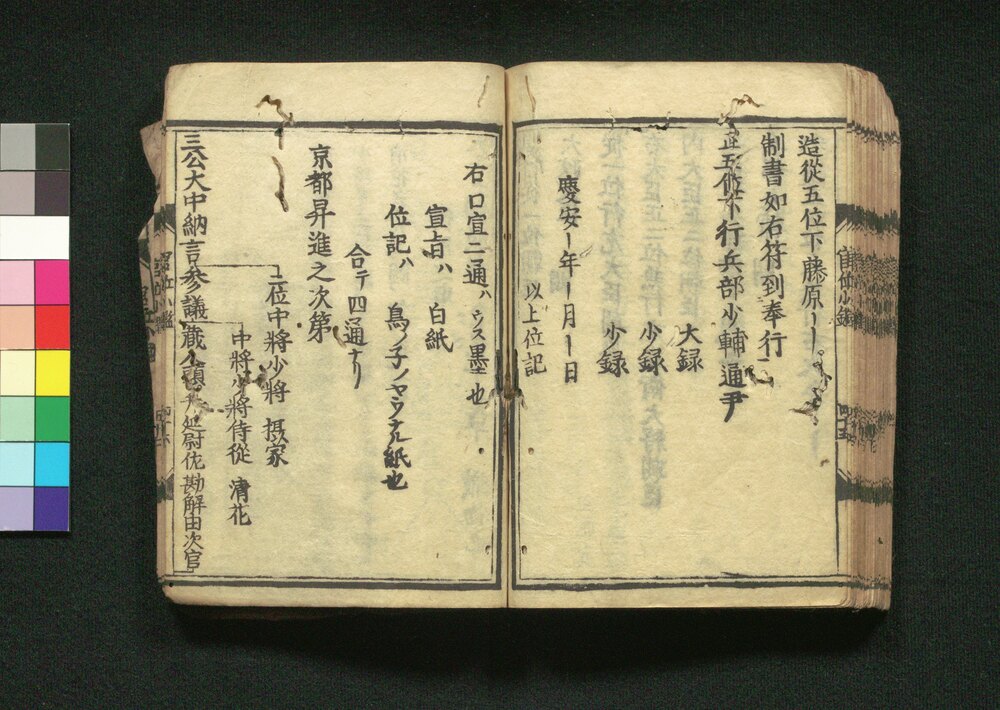 造從五位下藤原〡〡
制書如右符到奉行
正五位下行兵部少輔通尹
大録
少録
少録
慶安〡年〡月〡日
以上位記
右口宣二通ハウス墨也
宣旨ハ 白紙
位記ハ 鳥ノ子ノヤウナル紙也
合テ四通ナリ
京都昇進之次第
三位中將少將 摂家
中將少將侍從 清花
三公大中納言参議藏人頭 廷尉佐勘解由次官